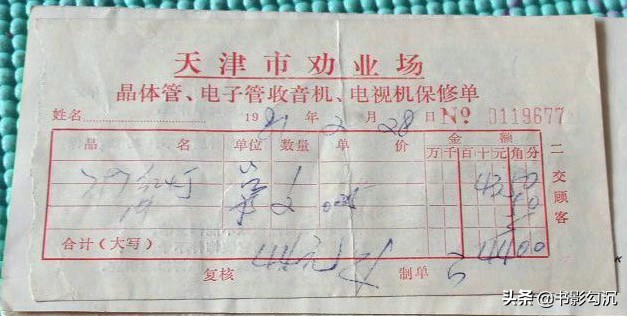 天津市劝业场
晶体管、电子管收音机、电视机保修单
姓名 1981年2月28日 № 0119677
品名 单位 数量 单价 金额
万 千 百 十 元 角 分
红灯 台 1 4350
2 50
合计(大写) 44元 4400
复核 制单
二交顾客
头条 @书影勾沉